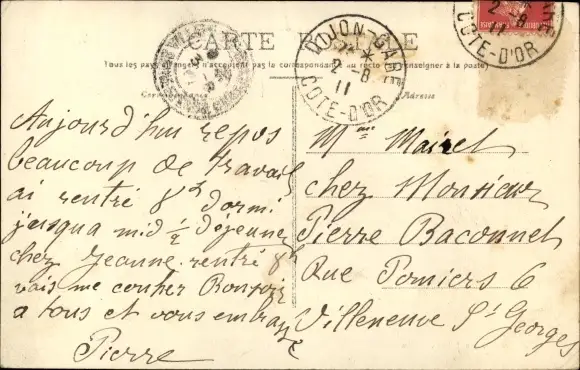 CARTE POSTALE
Tous les pays étrangers n'acceptent pas la correspondance au recto (se renseigner à la poste)
Correspondance
Adresse
DIJON GARE
2 -8
11
COTE-D'OR
2 -8
11
COTE-D'OR
Aujourd'hui repos
beaucoup de travail
ai rentré 8h dormi
jusqua midi ½ Déjeuner
chez Jeanne rentré 8h
vais me coucher Bonsoir
a tous et vous embrasse
Pierre
Mme Mairet
chez Monsieur
Pierre Baconnet
Rue Pomiers 6
Villeneuve St Georges